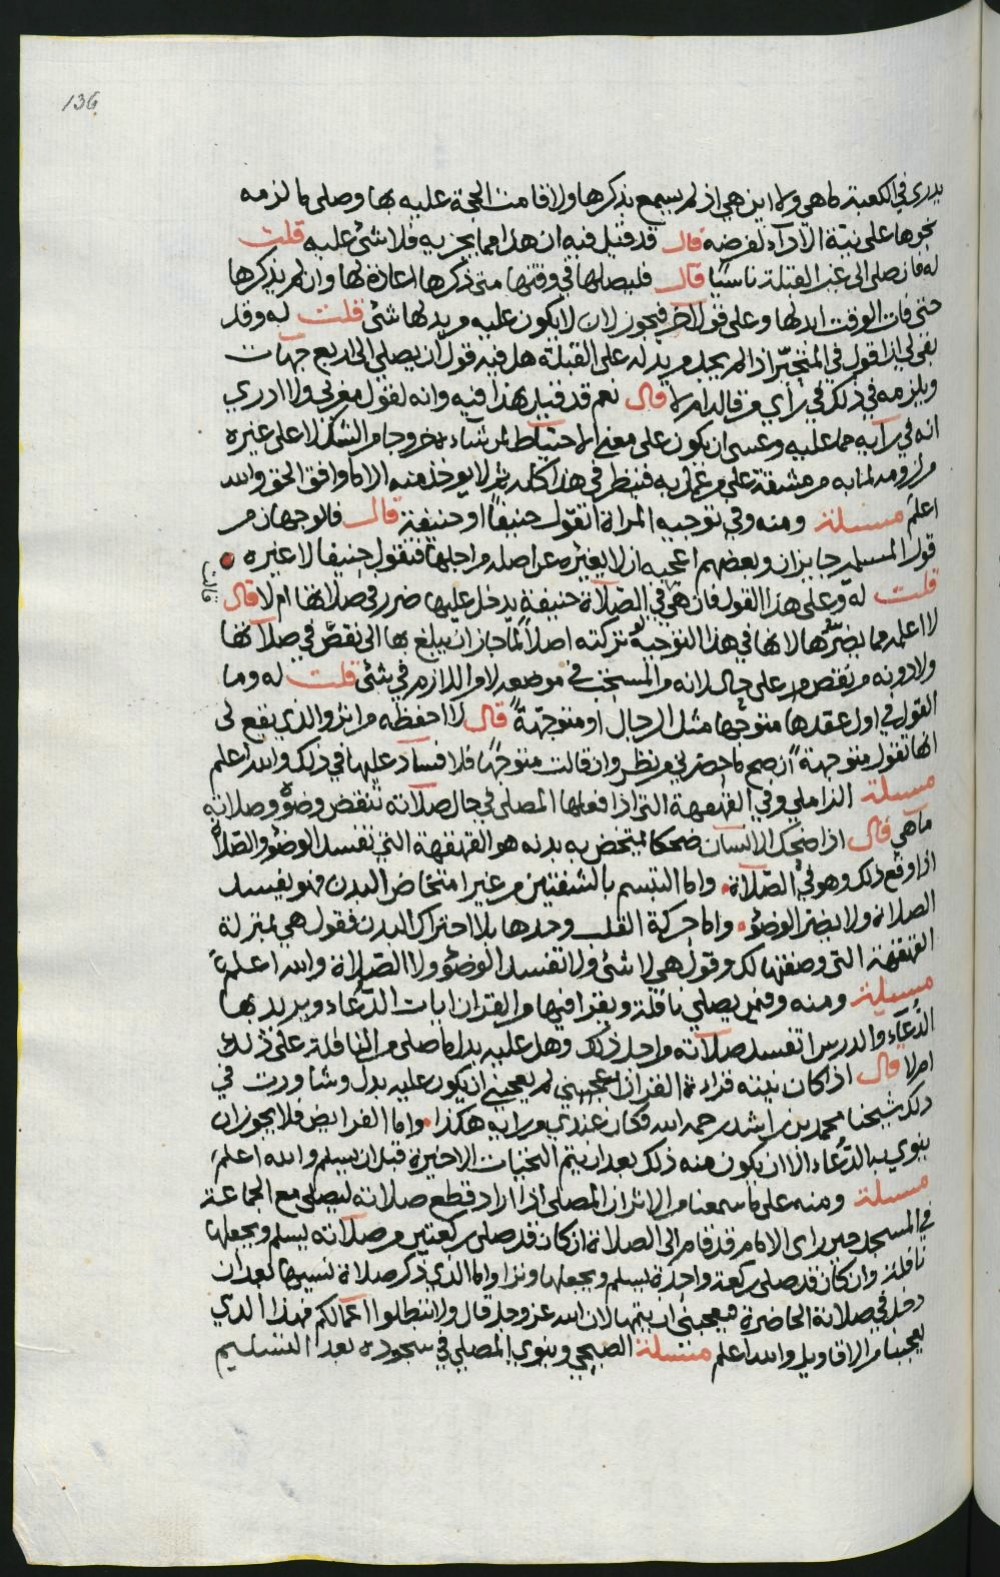 136
يدري في الكعبة ما هي ولا اين هي اذ لم يسمع بذكرها ولا قامت الحجة عليه بها وصلى ما لزمه
نحوها على نية الادآء لفرضه قال قد قيل فيه ان هذا مما يجزيه فلا شئ عليه قلت
له فان صلى الى غير القبلة ناسيا قال فليصلها في وقتها متى ذكرها اعادة لها وان لم يذكرها
حتى فات الوقت ابدلها وعلى قول آخر فيجوز لان لا يكون عليه من بدلها شئ قلت له وقد
بقي لي اذا قول في المتحيّر اذا لم يجد من يدله على القبلة هل فيه قول ان يصلي الى اربع جهات
ويلزمه في ذلك في رأي من قاله ام لا قال نعم قد قيل بهذا فيه وانه لقول مغربي ولا ادري
انه في رأيه مما عليه وعسى ان يكون على معنى الاحتياط لمن شاءه خروجا من الشك لا على غيره
من لزومه لما به من مشقة على من عمل به فينظر في هذا كله ثم لا يوخذ منه الا ما وافق الحق والله
اعلم مسئلة ومنه وفي توجيه المراة اتقول حنيفا او حنيفة قال فالوجهان من
قول المسلمين جايزان وبعضهم اعجبه ان لا يغيره عن اصله من اجلها فتقول حنيفا لا غيره
قلت له وعلى هذا القول فان هي في الصلاة حنيفة يدخل عليها ضرر في صلاتها ام لا قال
قالت
لا اعلمه مما يضرّها لانها في هذا التوجيه لو تركته اصلا لما جاز ان يبلغ بها الى نقض في صلاتها
ولا دونه من نقص على حال لانه من المستحب في موضعه لا من اللازم في شئ قلت له وما
القول في اول عقدها متوجها مثل الرجال او متوجهة قال لا احفظه من اثر والذي يقع لي
انها تقول متوجهة اصح ما حضرني من نظر وان قالت متوجها فلا فساد عليها في ذلك والله اعلم
مسئلة الزاملي وفي القهقهة التي اذا فعلها المصلي في حال صلاته تنقض وضوءه وصلاته
ما هي قال اذا ضحك الانسان ضحكا يمتخض به بدنه هو القهقهة التي تفسد الوضوء والصّلاة
اذا وقع ذلك وهو في الصّلاة واما التبسم بالشفتين من غير امتخاض البدن فهو يفسد
الصلاة ولا يضر الوضوء واما حركة القلب وحدها بلا احتراك البدن فقول هي بمنزلة
القهقهة التي وصفتها لك وقول هي لا شئ ولا تفسد الوضوء ولا الصلاة والله اعلم
مسئلة ومنه وفيمن يصلي نافلة ويقرا فيها من القران ايات الدّعاء ويريد بها
الدّعاء والدرس اتفسد صلاته من اجل ذلك وهل عليه بدل ما صلى من النافلة على ذلك
ام لا قال اذا كان نيته قراءة القران لم يعجبني ان يكون عليه بدل وشاورت في
ذلك شيخنا محمد بن راشد رحمه الله فكان عندي من رايه هكذا واما الفرايض فلا يجوز ان
ينوي به الدّعاء الا ان يكون منه ذلك بعد ان يتم التحيات الاخيرة قبل ان يسلم والله اعلم
مسئلة ومنه على ما سمعنا من الاثر ان المصلي اذا اراد قطع صلاته ليصلي مع الجماعة
في المسجد حين راى الامام قد قام الى الصلاة ان كان قد صلى ركعتين من صلاته يسلم ويجعلها
نافلة وان كان قد صلى ركعة واحدة يسلم ويجعلها وترا واما الذي ذكر صلاة نسيها بعد ان
دخل في صلاة الحاضرة فيعجبني ان يتمها لان الله عز وجل قال ولا تبطلوا اعمالكم فهذا الذي
يعجبنا من الاقاويل والله اعلم مسئلة الصبحي وينوي المصلي في سجوده بعد التسليم